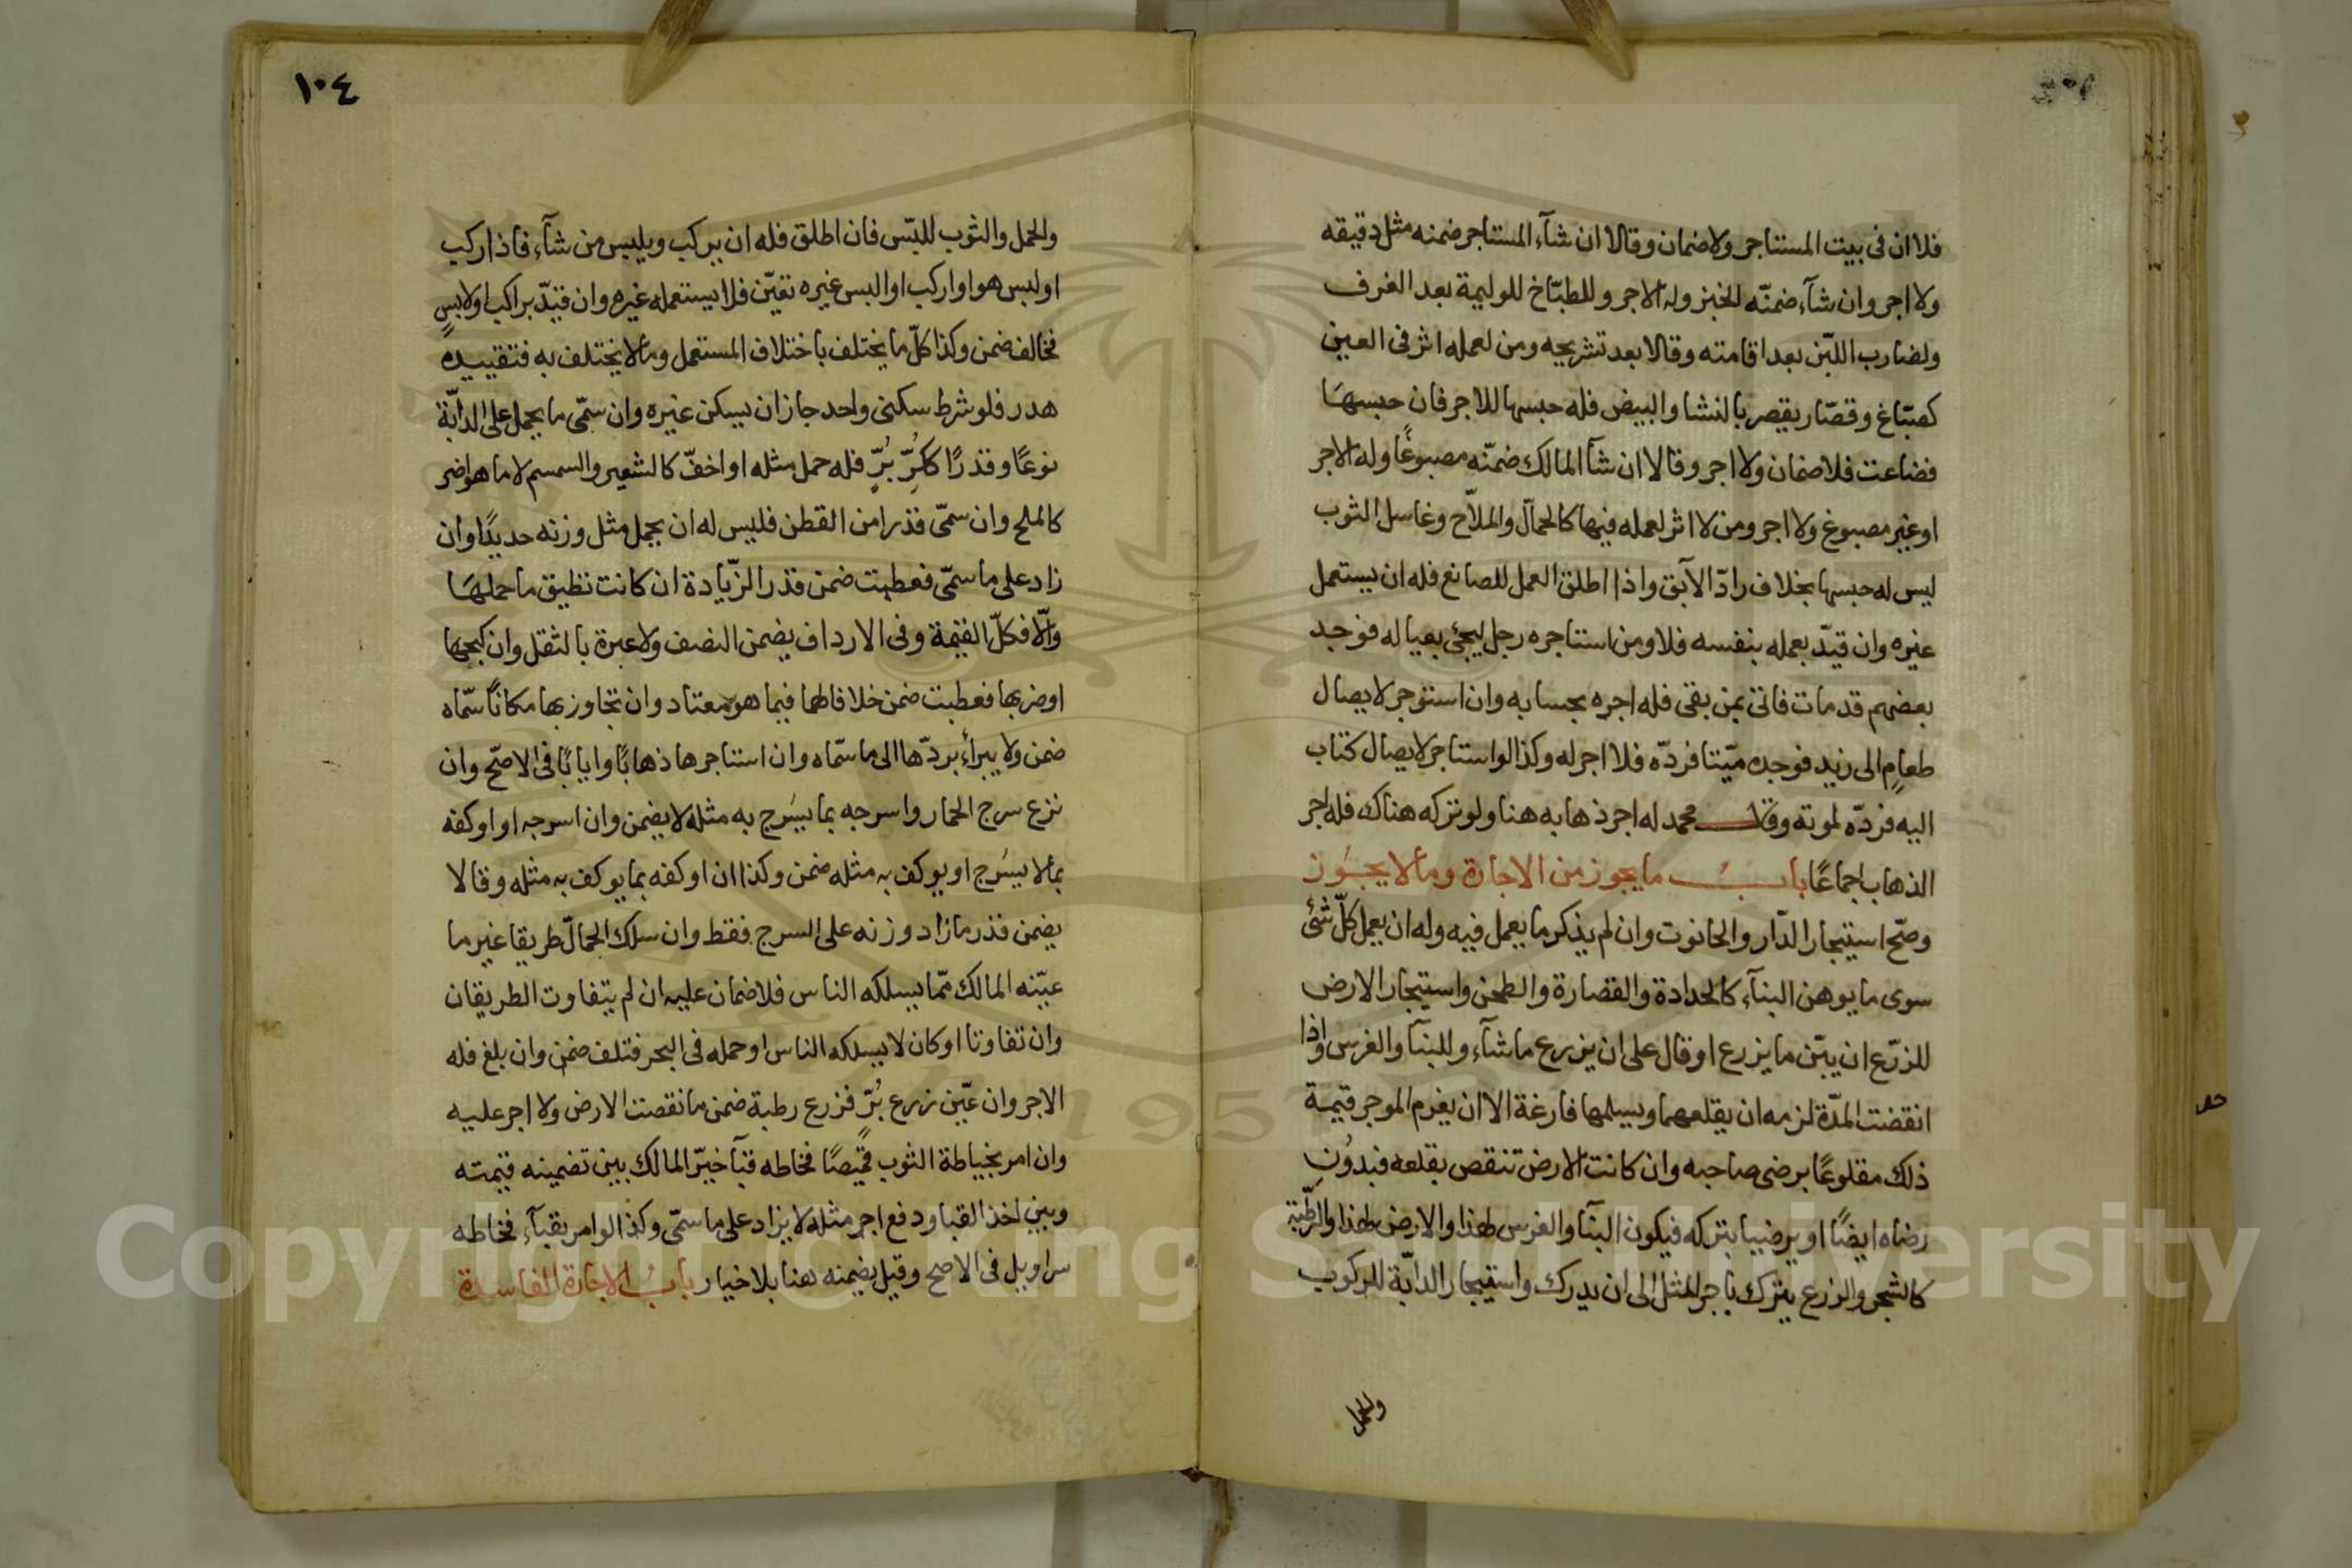 فلا ان فى بيت المستاجر ولا ضمان وقالا ان شآء المستاجر ضمنه مثل دقيقه
ولا اجر وان شآء ضمنّه الخبز وله الاجر وللطبّاخ للوليمة بعد الغرف
ولضارب اللبّن بعد اقامته وقالا بعد تشريجه ومن لعمله اثر فى العين
كصبّاغ وقصّار يقصر بالنشا والبيض فله حبسها للاجر فان حبسهَا
فضاعت فلا ضمان ولا اجر وقالا ان شآ المالك ضمنّه مصبوغًا وله الاجر
او غير مصبوغ ولا اجر ومن لا اثر لعمله فيها كالحمّال والملاّح وغاسل الثوب
ليس له حبسها بخلاف رادّ الآبق واذا اطلق العمل للصانع فله ان يستعمل
غيره وان قيدّ بعمله بنفسه فلا ومن استاجره رجل ليجئ بعياله فوجد
بعضهم قد مات فاتى بمن بقى فله اجره بحسابه وان استوجر لايصال
طعامٍ الى زيد فوجده ميّتا فردّه فلا اجر له وكذا لو استاجر لايصال كتاب
اليه فردّه لموته وقال محمد له اجر ذهابه هنا ولو تركه هناك فله اجر
الذهاب اجماعًا بابُ ما يجوز من الاجارة وما لا يجُوز
وصحّ استيجار الدّار والحانوت وان لم يذكر ما يعمل فيه وله ان يعمل كلّ شئ
سوى ما يوهن البنآء كالحدادة والقصارة والطحن واستيجار الارض
للزرّع ان بيّن ما يزرع او قال على ان يزرع ما شآء وللبنآ والغرس واذا
انقضت المدّة لزمه ان يقلعهما ويسلمها فارغة الا ان يغرم الموجر قيمة
ذلك مقلوعًا برضى صاحبه وان كانت الارض تنقص بقلعه فبدُونِ
رضاه ايضًا او يرضيا بتركه فيكون البنآ والغرس لهذا والارض لهذا والرّطبة
كالشجر والزرع يترك باجر المثل الى ان يدرك واستيجار الدابّة للركوب
والحمل
١٠٤
والحمل والثوب للبّس فان اطلق فله ان يركب ويلبس من شآء فاذا ركب
او لبس هو او اركب او البس غيره تعيّن فلا يستعمله غيره وان قيّد براكب او لابسٍ
فخالف ضمن وكذا كلّ ما يختلف باختلاف المستعمل وما لا يختلف به فتقييده
هدر فلو شرط سكنى واحد جاز ان يسكن غيره وان سمّى ما يحمل على الدابّة
نوعًا وقدرًا ككُرِّ بُرٍّ فله حمل مثله او اخفّ كالشعير والسمسم لا ما هو اضر
كالملح وان سمّى قدرا من القطن فليس له ان يحمل مثل وزنه حديدًا وان
زاد على ما سمّى فعطبت ضمن قدر الزّيادة ان كانت تطيق ما حملهَا
والّا فكلّ القيمة وفى الارداف يضمن النصف ولا عبرة بالثقل وان كبحها
او ضربها فعطبت ضمن خلافا لهما فيما هو معتاد وان تجاوز بها مكانًا سّماه
ضمن ولا يبرأ بردّها الى ما سمّاه وان استاجرها ذهابًا وايابًا فى الاصحّ وان
نزع سرج الحمار واسرجه بما يسَرج به مثله لا يضمن وان اسرجه او اوكفه
بما لا يسَرج او يوكف به مثله ضمن وكذا ان اوكفه بما يوكف به مثله وقالا
يضمن قدر ما زاد وزنه على السرج فقط وان سلك الحمّال طريقا غير ما
عيّنه المالك ممّا يسلكه الناس فلا ضمان عليه ان لم يتفاوت الطريقان
وان تفاوتا او كان لا يسلكه الناس او حمله فى البحر فتلف ضمن وان بلغ فله
الاجر وان عيّن زرع بُرّ فزرع رطبة ضمن ما نقصت الارض ولا اجر عليه
وان امر بخياطة الثوب قميصًا فخاطه قبآ خيّر المالك بين تضمينه قيمته
وبين اخذ القبا ودفع اجر مثله لا يزاد على ما سمّى وكذا لو امر بقبآء فخاطه
سراويل فى الاصح وقيل يضمنه هنا بلا خيار بابُ الاجارة الفاسدة
Copyright © King Saud University
1957